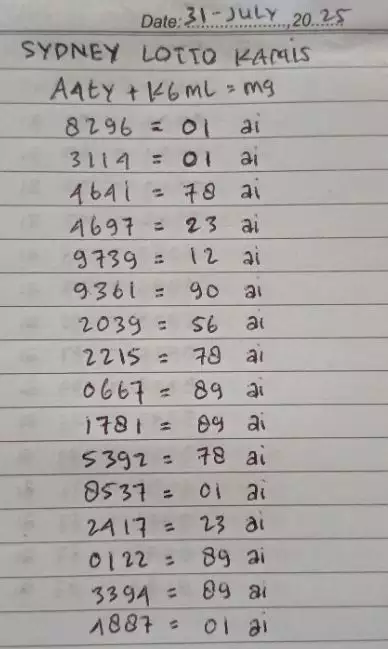 Date: 31-JULY, 2025
SYDNEY LOTTO KAMIS
A4ty + K6ml = mg
8296 = 01 ai
3114 = 01 ai
4641 = 78 ai
4697 = 23 ai
9739 = 12 ai
9361 = 90 ai
2039 = 56 ai
2215 = 78 ai
0667 = 89 ai
1781 = 89 ai
5392 = 78 ai
8537 = 01 ai
2417 = 23 ai
0122 = 89 ai
3394 = 89 ai
1887 = 01 ai